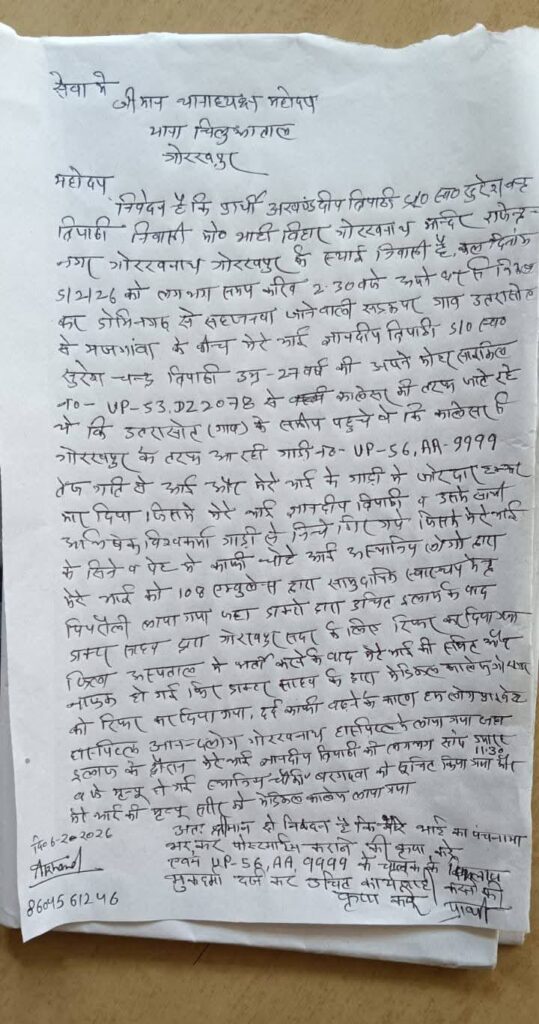 सेवा मे
श्रीमान थानाध्यक्ष महोदय
थाना चिलुआताल
गोरखपुर
महोदय
निवेदन है कि प्रार्थी अखण्डदीप त्रिपाठी S/O स्व० सुरेश चन्द्र
त्रिपाठी निवासी मो० माही विहार गोरखनाथ मन्दिर राजेन्द्र-
नगर गोरखनाथ गोरखपुर के स्थाई निवासी है, कल दिनांक
5/2/26 को लगभग समय करिब 2-30 बजे अपने घर से निकल
कर डोमिनगढ से सहजनवा जाने वाली सड़क पर गाव उतरासोत
से मजगांवा के बीच मेरे भाई ज्ञानदीप त्रिपाठी S/O स्व०
सुरेश चन्द्र त्रिपाठी उम्र-27 वर्ष की अपने मोटर साइकिल
नo- UP-53.DZ2078 से कालेसर की तरफ जाते रहे
थे कि उतरासोत (गाव) के समीप पहुचे थे कि कालेसर से
गोरखपुर के तरफ आ रही गाडी नo- UP-56,AA-9999
तेज गति से आई और मेरे भाई के गाडी मे जोरदार टक्कर
मार दिया जिसमे मेरे भाई ज्ञानदीप त्रिपाठी व उसके साथी
अभिषेक विश्वकर्मा गाडी से निचे गिर गये जिसमे मेरे भाई
के सिने व पेट मे काफी चोटे आई अस्थानिय लोगो द्वारा
मेरे भाई को 108 एम्बुलेंस द्वारा सामुदायिक स्वास्थ्य केन्द्र
पिपरौली लाया गया जहा डाक्टरो द्वारा उचित इलाज के बाद
डाक्टर साहब द्वारा गोरखपुर सदर के लिए रिफर कर दिया गया
जिला अस्पताल मे भर्ती करने के बाद मेरे भाई की स्थिति और
नाजुक हो गई फिर डाक्टर साहब के द्वारा मेडिकल कालेज गोरखपुर
को रिफर कर दिया गया, दर्द काफी बढने के कारण हम लोग प्राइवेट
हास्पिटल गोरखनाथ हास्पिटल लाया गया जहा
इलाज के दौरान मेरे भाई ज्ञानदीप त्रिपाठी की लगभग सांय 11:30
बजे मृत्यु हो गई स्थानिय चौकी बरगदवा को सूचित किया गया और
मेरे भाई की मृत्यु शरीर को मेडिकल कालेज लाया गया
अतः श्रीमान से निवेदन है कि मेरे भाई का पंचनामा
भर कर पोस्टमार्टम कराने की कृपा करे
एवम UP-56,AA,9999 के चालक के खिलाफ
मुकदमा दर्ज कर उचित कार्यवाही करने की
कृपा करे
प्रार्थी
दि० 6-2-2026
Akhand
8604561246